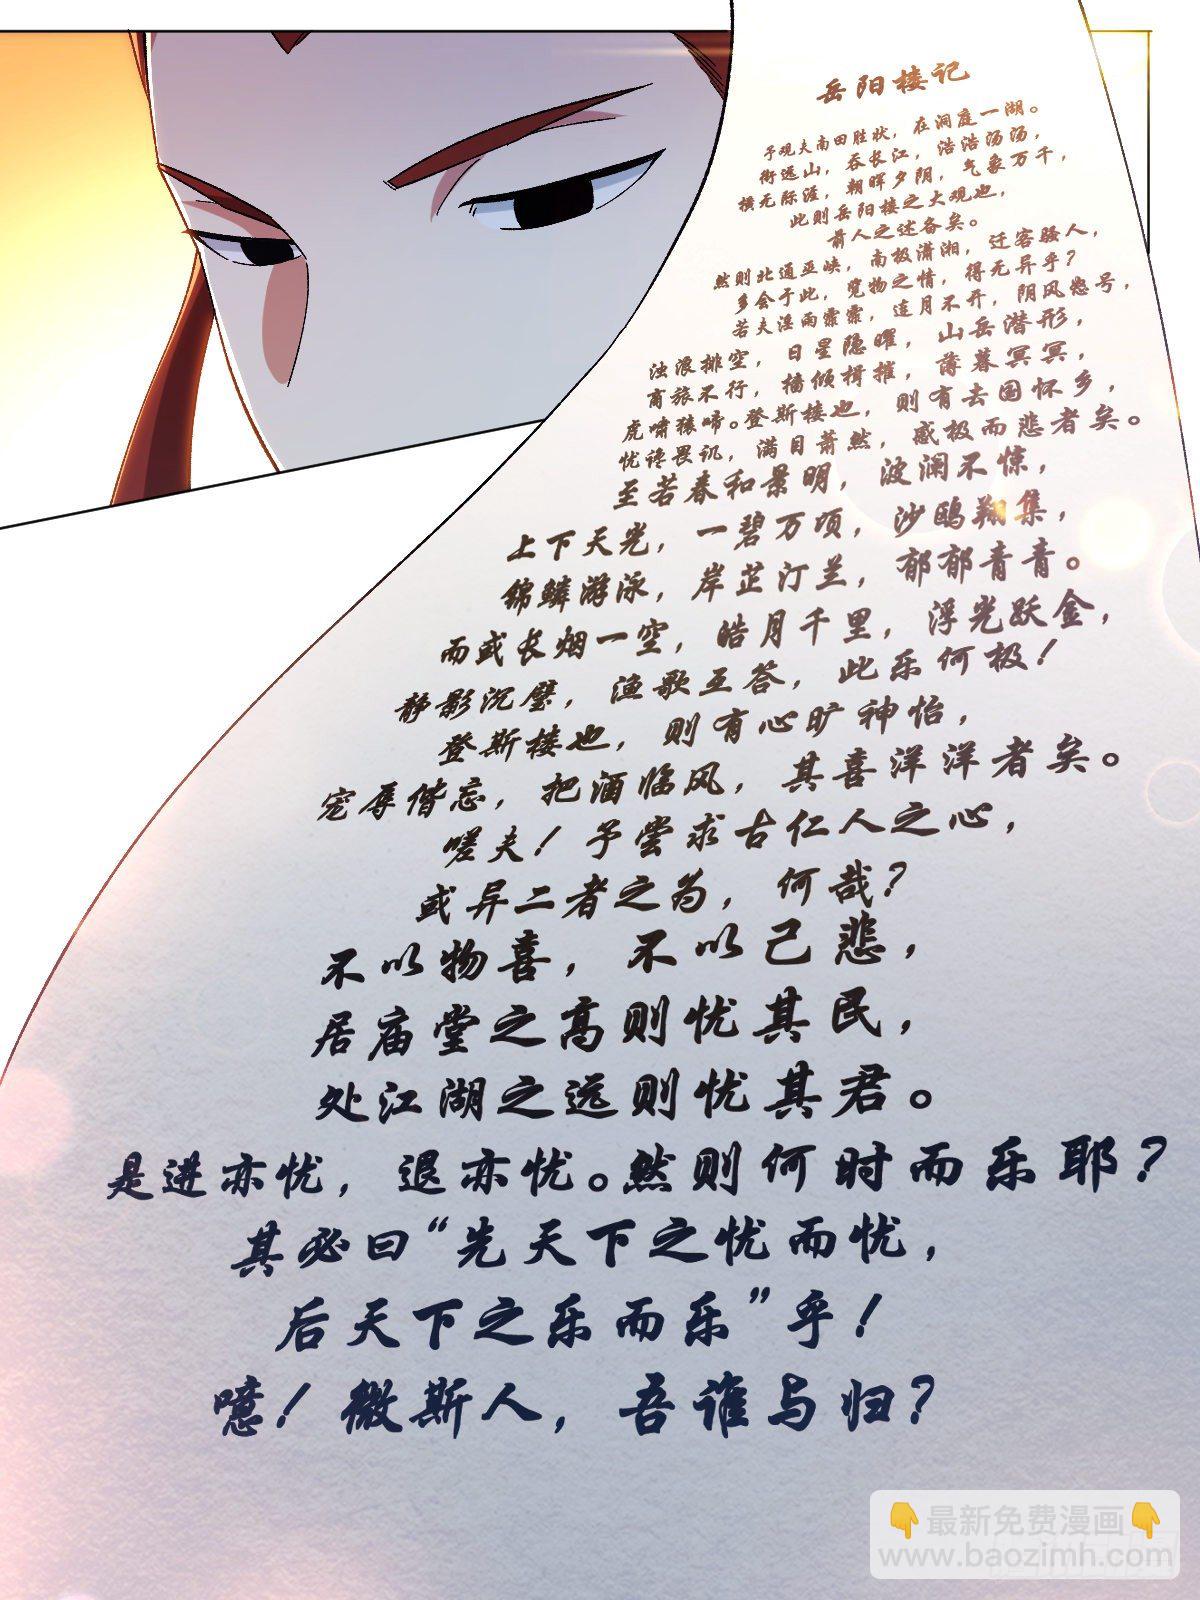 岳阳楼记
予观夫南田胜状，在洞庭一湖。
衔远山，吞长江，浩浩汤汤，
横无际涯，朝晖夕阴，气象万千，
此则岳阳楼之大观也，
前人之述备矣。
然则北通巫峡，南极潇湘，迁客骚人，
多会于此，览物之情，得无异乎？
若夫淫雨霏霏，连月不开，阴风怒号，
浊浪排空，日星隐曜，山岳潜形，
商旅不行，樯倾楫摧，薄暮冥冥，
虎啸猿啼。登斯楼也，则有去国怀乡，
忧谗畏讥，满目萧然，感极而悲者矣。
至若春和景明，波澜不惊，
上下天光，一碧万顷，沙鸥翔集，
锦鳞游泳，岸芷汀兰，郁郁青青。
而或长烟一空，皓月千里，浮光跃金，
静影沉璧，渔歌互答，此乐何极！
登斯楼也，则有心旷神怡，
宠辱偕忘，把酒临风，其喜洋洋者矣。
嗟夫！予尝求古仁人之心，
或异二者之为，何哉？
不以物喜，不以己悲，
居庙堂之高则忧其民，
处江湖之远则忧其君。
是进亦忧，退亦忧。然则何时而乐耶？
其必曰“先天下之忧而忧，
后天下之乐而乐”乎！
噫！微斯人，吾谁与归？
最新免费漫画
www.baozimh.com